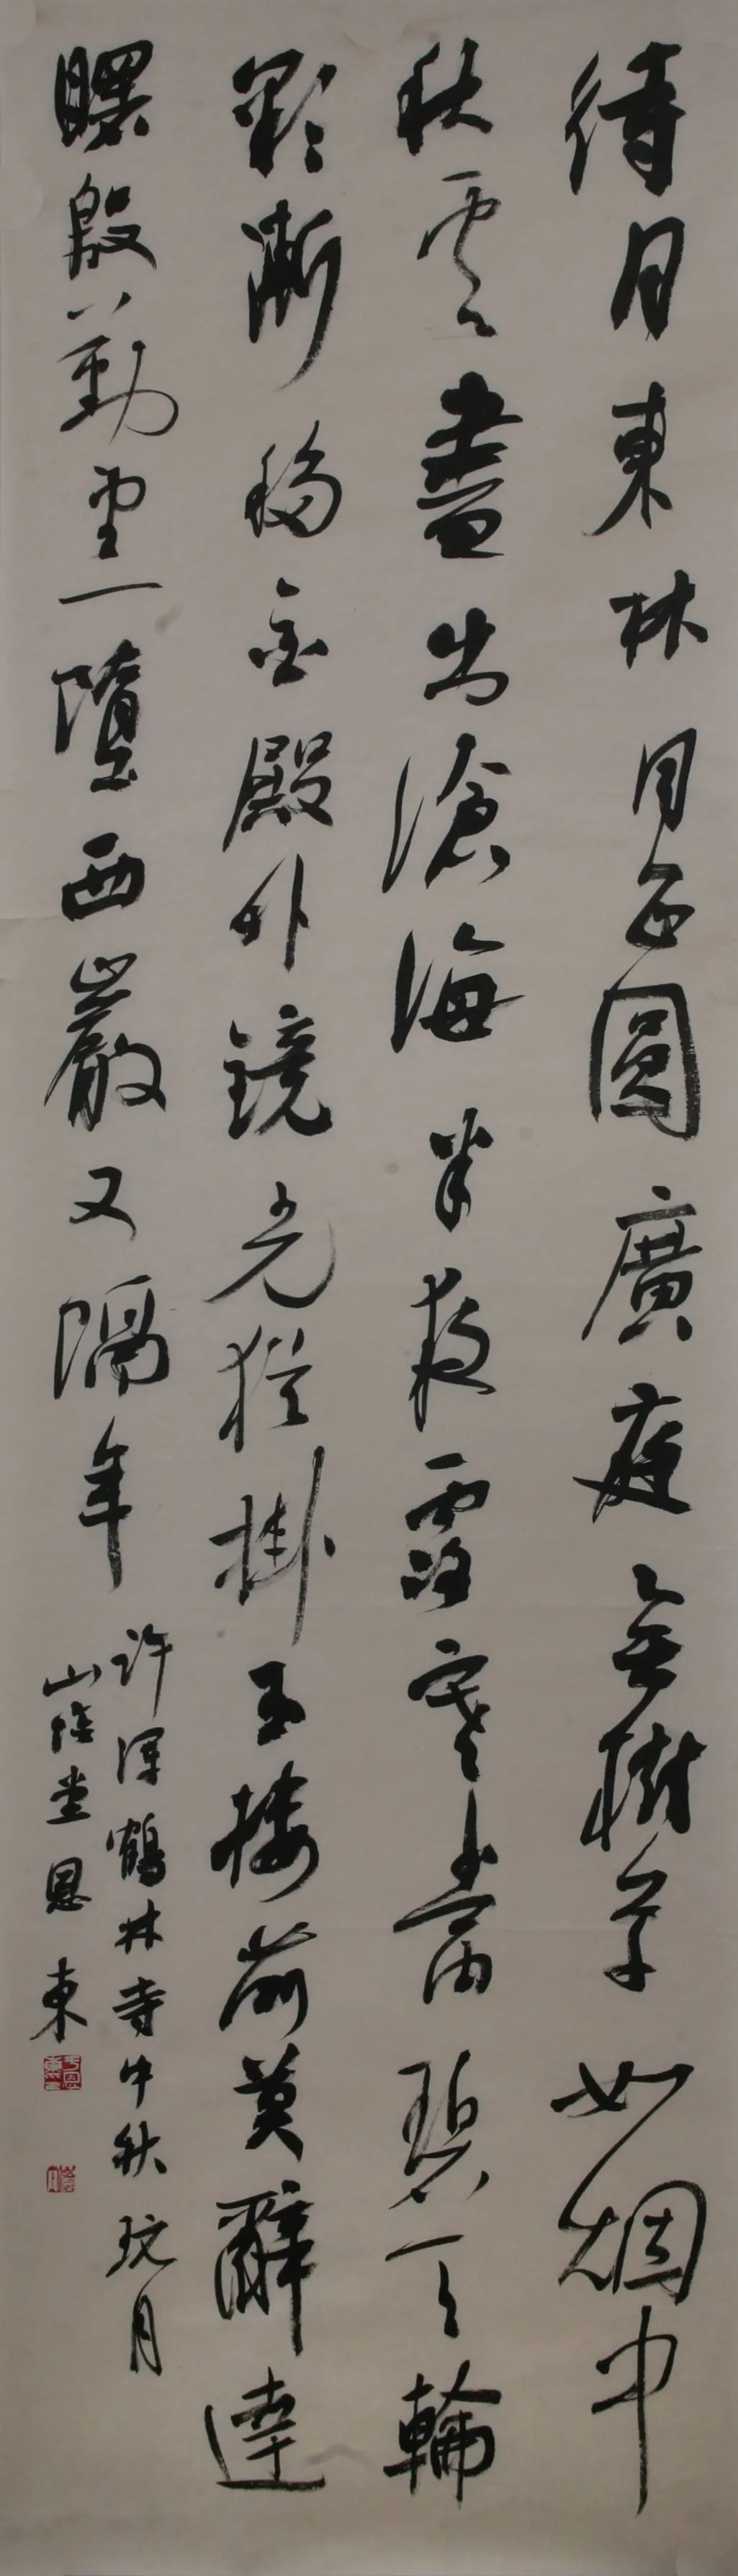 待月東林月正圓廣庭無樹草如烟中
秋雲盡出滄海半夜露寒當碧天輪
彩漸移金殿外鏡光猶掛玉樓前莫辭達
曙殷勤望一墮西巖又隔年
許渾鶴林寺中秋玩月
山堂恩東